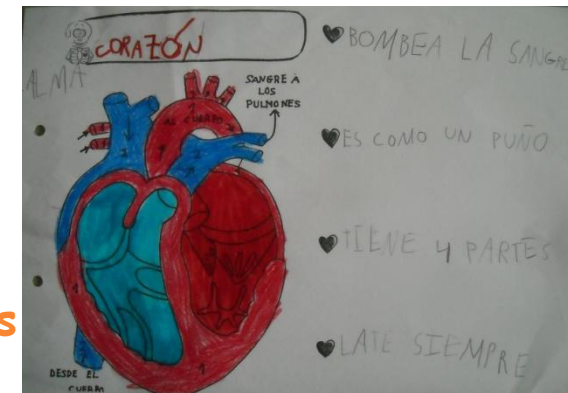 CORAZÓN
ALMA
SANGRE A
LOS
PULMONES
AL CUERPO
DESDE EL
CUERPO
BOMBEA LA SANGRE
ES COMO UN PUÑO
TIENE 4 PARTES
LATE SIEMPRE
s